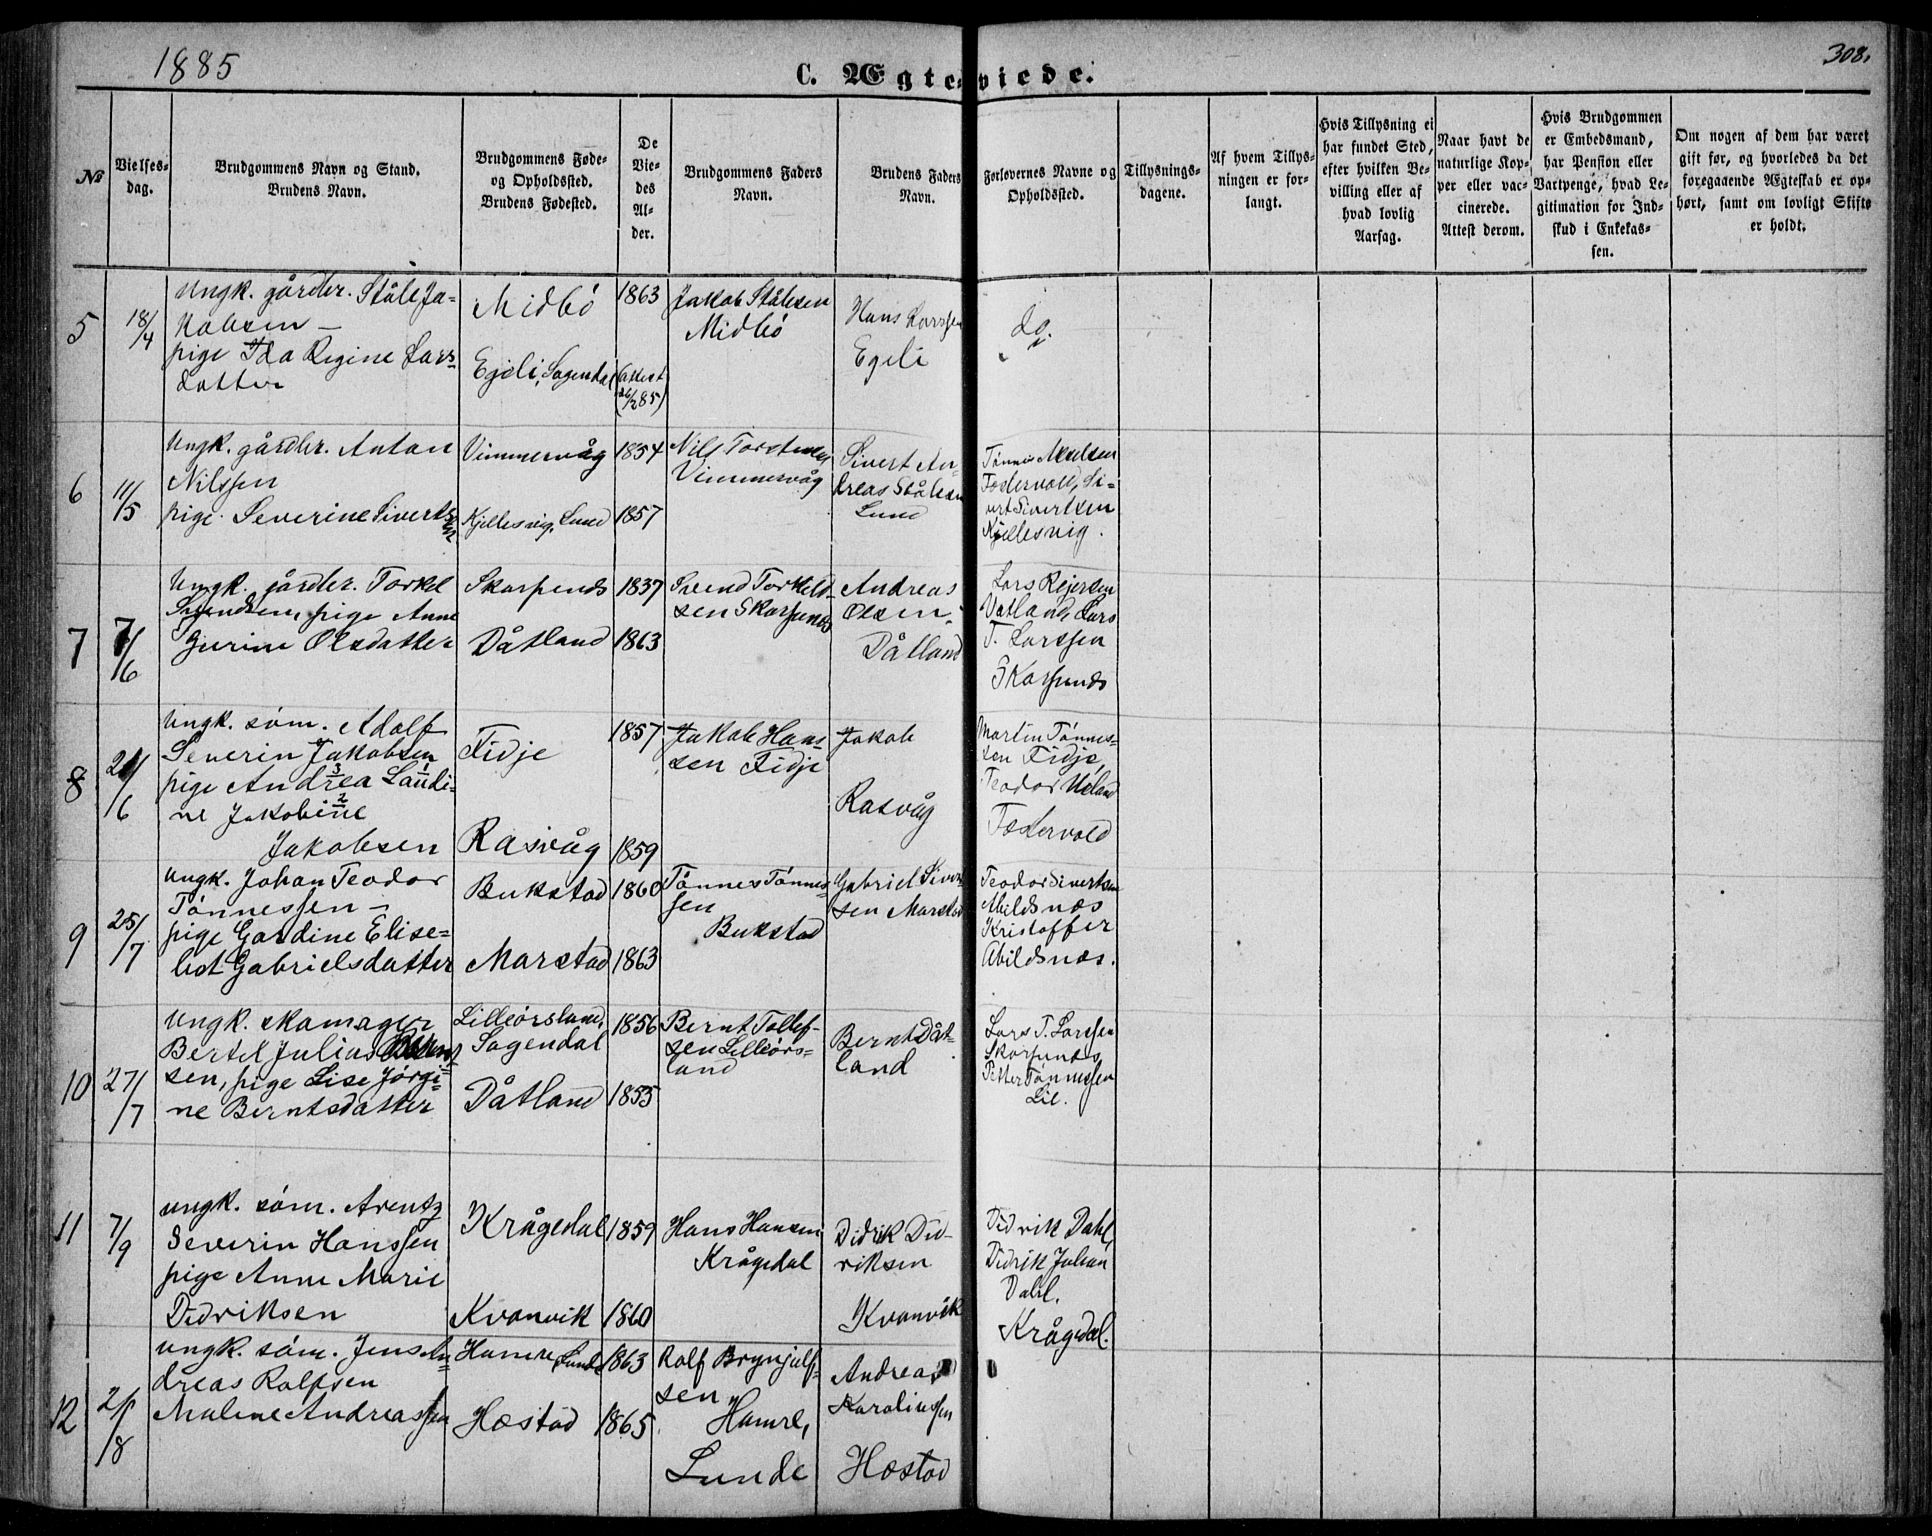 1885
308.
C. Ægteviede.
№
Vielses-
dag.
Brudgommens Navn og Stand.
Brudens Navn.
Brudgommens Føde-
og Opholdssted.
Brudens Fødested.
De
Vie-
des
Al-
der.
Brudgommens Faders
Navn.
Brudens Faders
Navn.
Forlovernes Navne og
Opholdssted.
Tillysnings-
dagene.
Af hvem Tillys-
ningen er for-
langt.
Hvis Tillysning ei
har fundet Sted,
efter hvilken Be-
villing eller af
hvad lovlig
Aarsag.
Naar havt de
naturlige Kop-
per eller vac-
cinerede.
Attest derom.
Hvis Brudgommen
er Embedsmand,
har Pension eller
Vartpenge, hvad Le-
gitimation for Ind-
skud i Enkekas-
sen.
Om nogen af dem har været
gift før, og hvorledes da det
foregaaende Ægteskab er op-
hørt, samt om lovligt Skifte
er holdt.
5
18/4
Ungk. gårdbr. Ståle Ja-
kobsen –
pige Ida Regine Lars-
datter
Midbö
Egeli, Sogendal
1863
(attest
26/2 85)
Jakob Stålesen
Midbö
Hans Larssen
Egeli
do.
6
11/5
Ungk. gårdbr. Anton
Nilssen
pige Severine Sivertsen
Vimmervåg
Kjellesvig, Lund
1854
1857
Nils Torstensen
Vimmervåg
Sivert An-
dreas Stålesen
Lund
Tönnes Axelsen
Foedervold, Si-
vert Sivertsen
Kjellesvig.
7
7/6
Ungk. gårdbr. Torkel
Svendsen, pige Anne
Gurine Olsdatter
Skarpends
Dåtland
1837
1863
Svend Torkeld-
sen Skarpends
Andreas
Olsen
Dåtland
Lars Rejersen
Vatland, Lars
T. Larssen
Skarpends
8
21/6
Ungk. söm. Adolf
Severin Jakobsen
pige Andrea Laudi-
3 1
ne Jakobine
2
Jakobsen
Fidje
Rasvåg
1857
1859
Jakob Hans-
sen Fidje
Jakob
Rasvåg
Martin Tönnes-
sen Fidje,
Teodor Ueland
Foedervold
9
25/7
Ungk. Johan Teodor
Tönnessen –
pige Gardine Elise-
bet Gabrielsdatter
Bukstad
Marstad
1860
1863
Tönnes Tönnes-
sen
Bukstad
Gabriel Sivert-
sen Marstad
Teodor Sivertsen
Abildsnæs
Kristoffer
Abildsnæs.
10
27/7
Ungk. skomager
Bertel Julius Bernt-
sen, pige Lise Jörgi-
ne Berntsdatter
Lilleörsland,
Sogendal
Dåtland
1856
1855
Bernt Tollef-
sen Lilleörs-
land
Bernt Dåt-
land
Lars T. Larssen
Skarpends
Petter Tönnessen
Lie.
11
7/9
Ungk. söm. Arentz
Severin Hanssen
pige Anne Marie
Didriksen
Krågedal
Kvanvik
1859
1860
Hans Hansen
Krågedal
Didrik Did-
riksen
Kvanvik
Didrik Dahl,
Didrik Julian
Dahl.
Krågedal.
12
21/8
Ungk. söm. Jens An-
dreas Rolfsen
Maline Andreassen
Hamre, Lunde
Hæstad
1863
1865
Rolf Brynjulf-
sen
Hamre,
Lunde
Andreas
Karolinssen
Hæstad